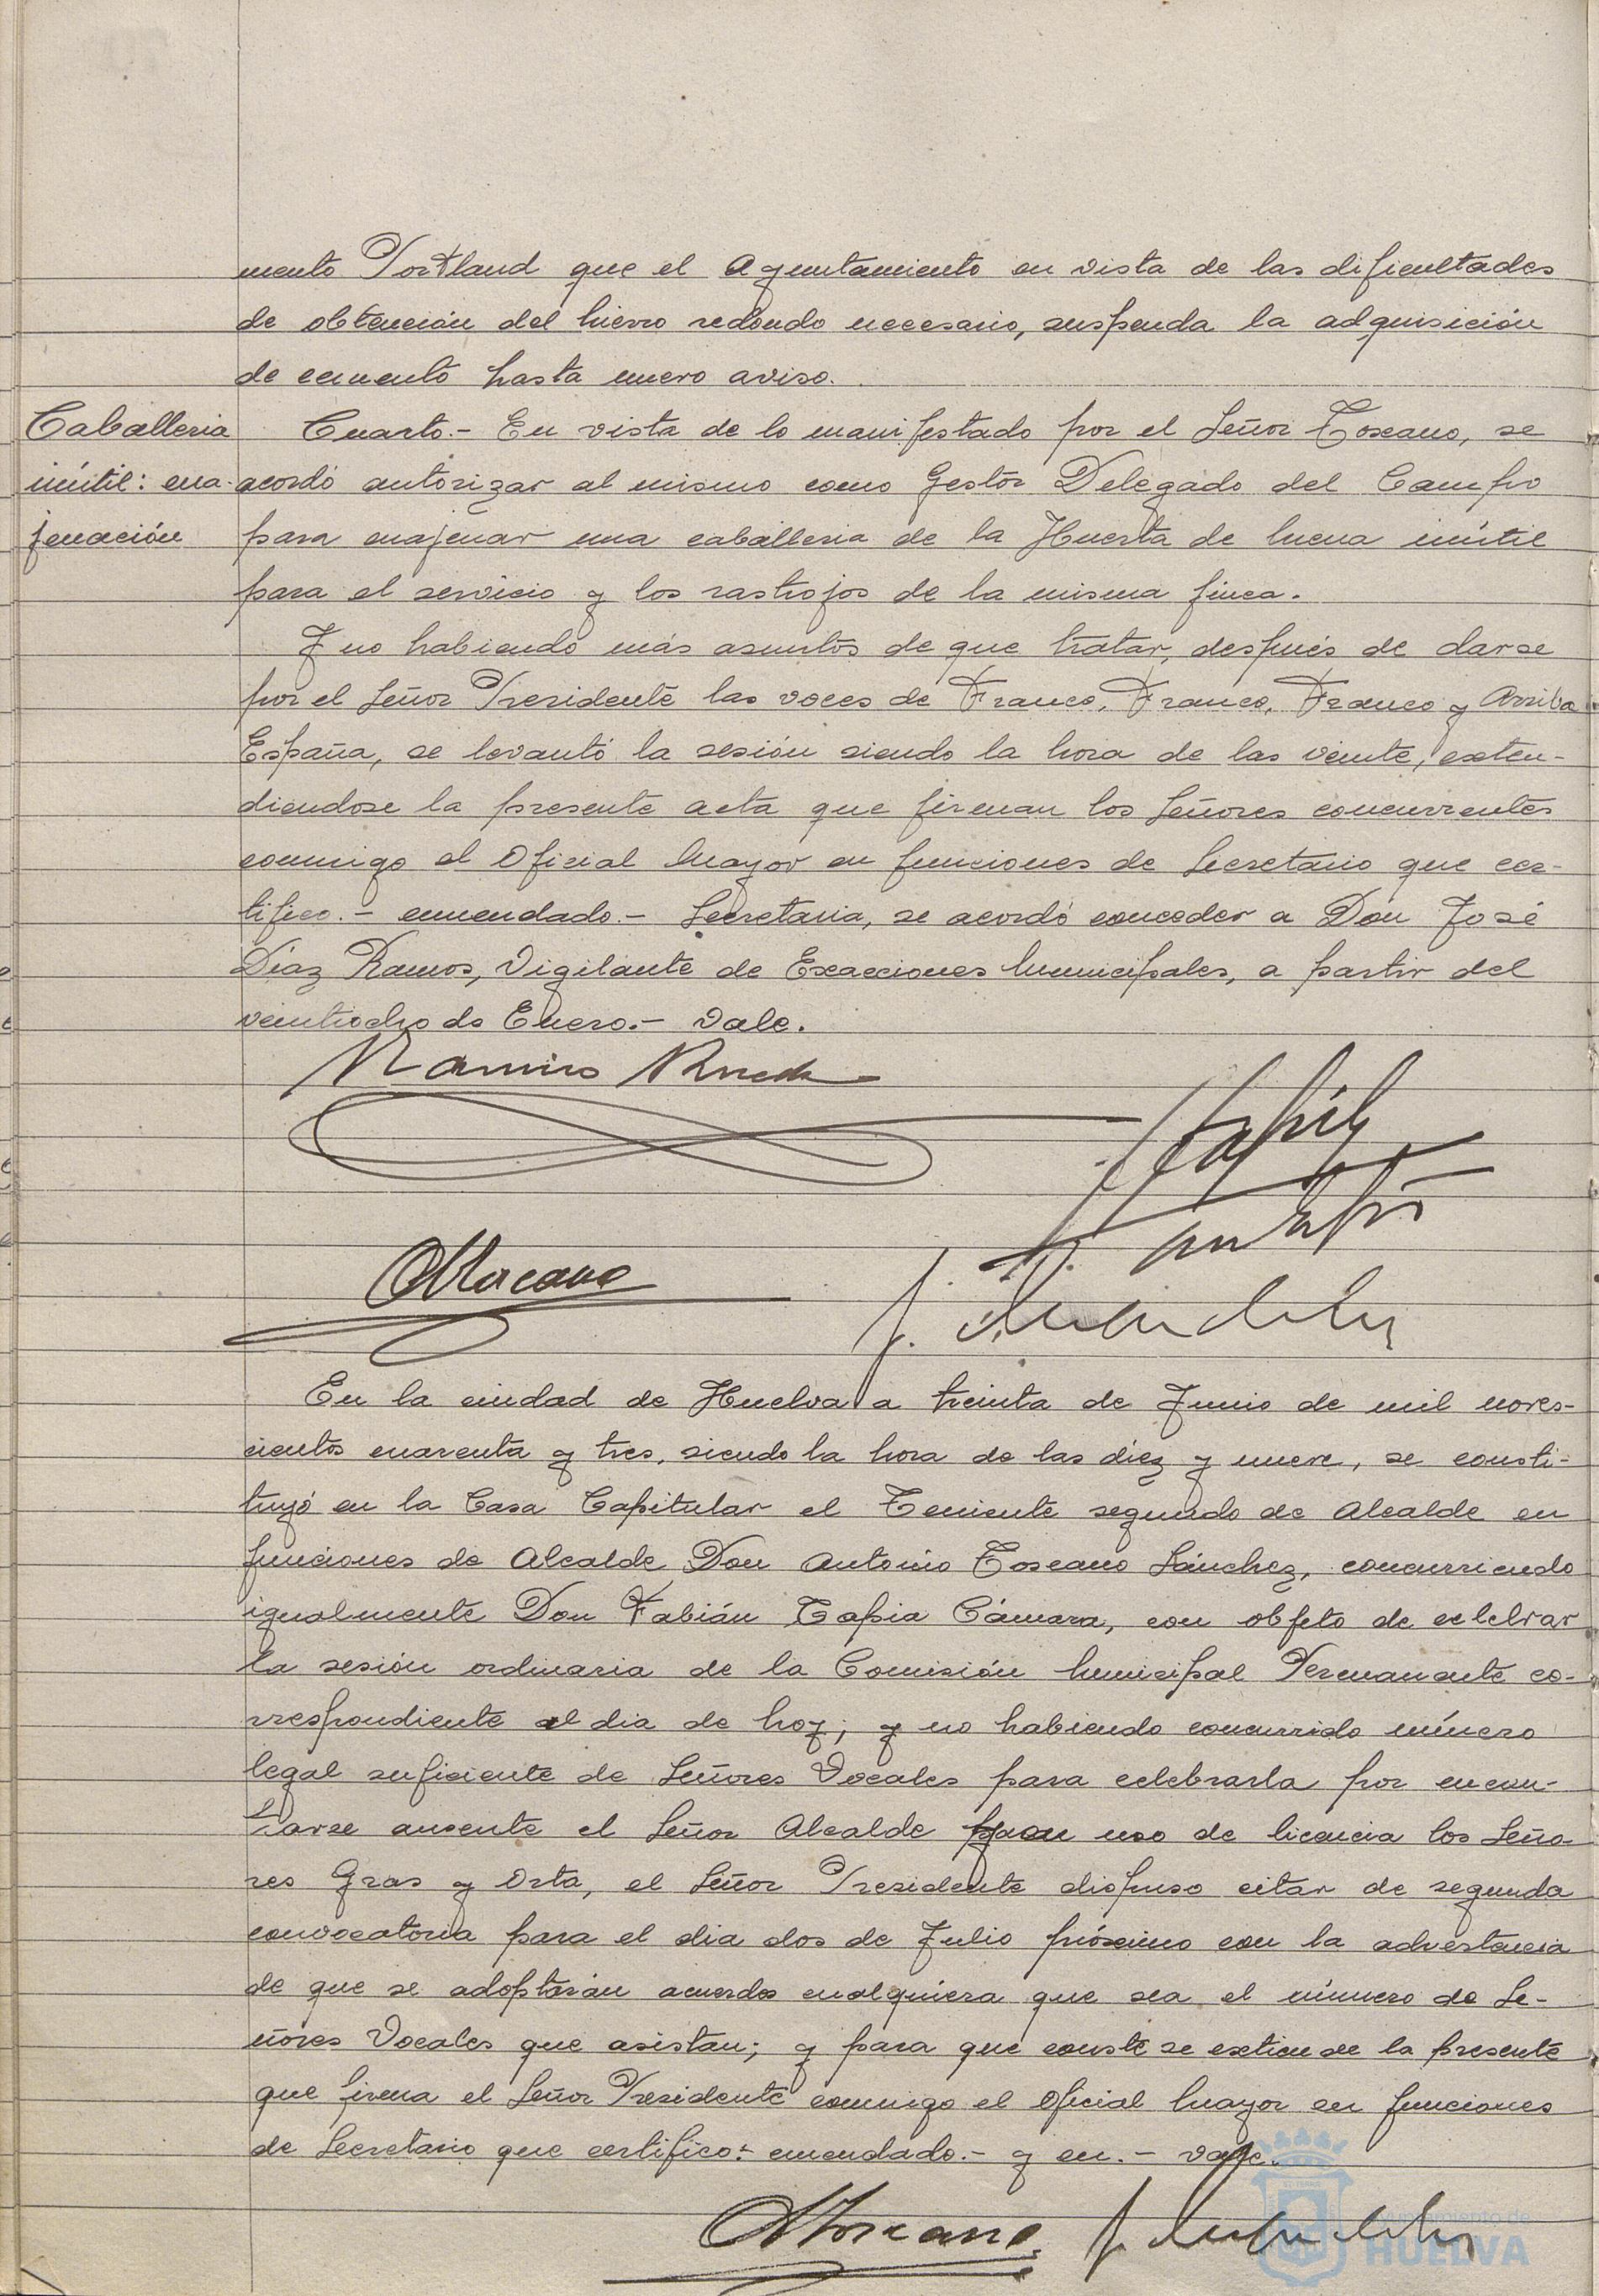 mento Portland que el Ayuntamiento en vista de las dificultades
de obtención del hierro redondo necesario, suspenda la adquisición
de cemento hasta nuevo aviso.
Caballeria
inútil: ena-
jenación
Cuarto.- En vista de lo manifestado por el Señor Toscano, se
acordó autorizar al mismo como Gestor Delegado del Campo
para enajenar una caballeria de la Huerta de Mena inútil
para el servicio y los rastrojos de la misma finca.
Y no habiendo más asuntos de que tratar, después de darse
por el Señor Presidente las voces de Franco, Franco, Franco y Arriba
España, se levantó la sesión siendo la hora de las veinte, exten-
diendose la presente acta que firman los Señores concurrentes
conmigo el Oficial Mayor en funciones de Secretario que cer-
tifico.- enmendado.- Secretaria, se acordó conceder a Don José
Díaz Ramos, Vigilante de Exacciones Municipales, a partir del
veintiocho de Enero.- Vale.
Ramiro Rueda
F. Tapia
AToscano
En la ciudad de Huelva a treinta de Junio de mil noves-
cientos cuarenta y tres, siendo la hora de las diez y nueve, se consti-
tuyó en la Casa Capitular el Teniente segundo de Alcalde en
funciones de Alcalde Don Antonio Toscano Sánchez, concurriendo
igualmente Don Fabián Tapia Cámara, con objeto de celebrar
la sesión ordinaria de la Comisión Municipal Permanente co-
rrespondiente al dia de hoy; y no habiendo concurrido número
legal suficiente de Señores Vocales para celebrarla por encon-
trarse ausente el Señor Alcalde y en uso de licencia los Seño-
res Gras y Orta, el Señor Presidente dispuso citar de segunda
convocatoria para el dia dos de Julio próximo con la advertencia
de que se adoptarán acuerdos cualquiera que sea el número de Se-
ñores Vocales que asistan; y para que conste se extiende la presente
que firma el Señor Presidente conmigo el Oficial Mayor en funciones
de Secretario que certifico.- enmendado.- y en.- vale.
AToscano
Ayuntamiento de
HUELVA